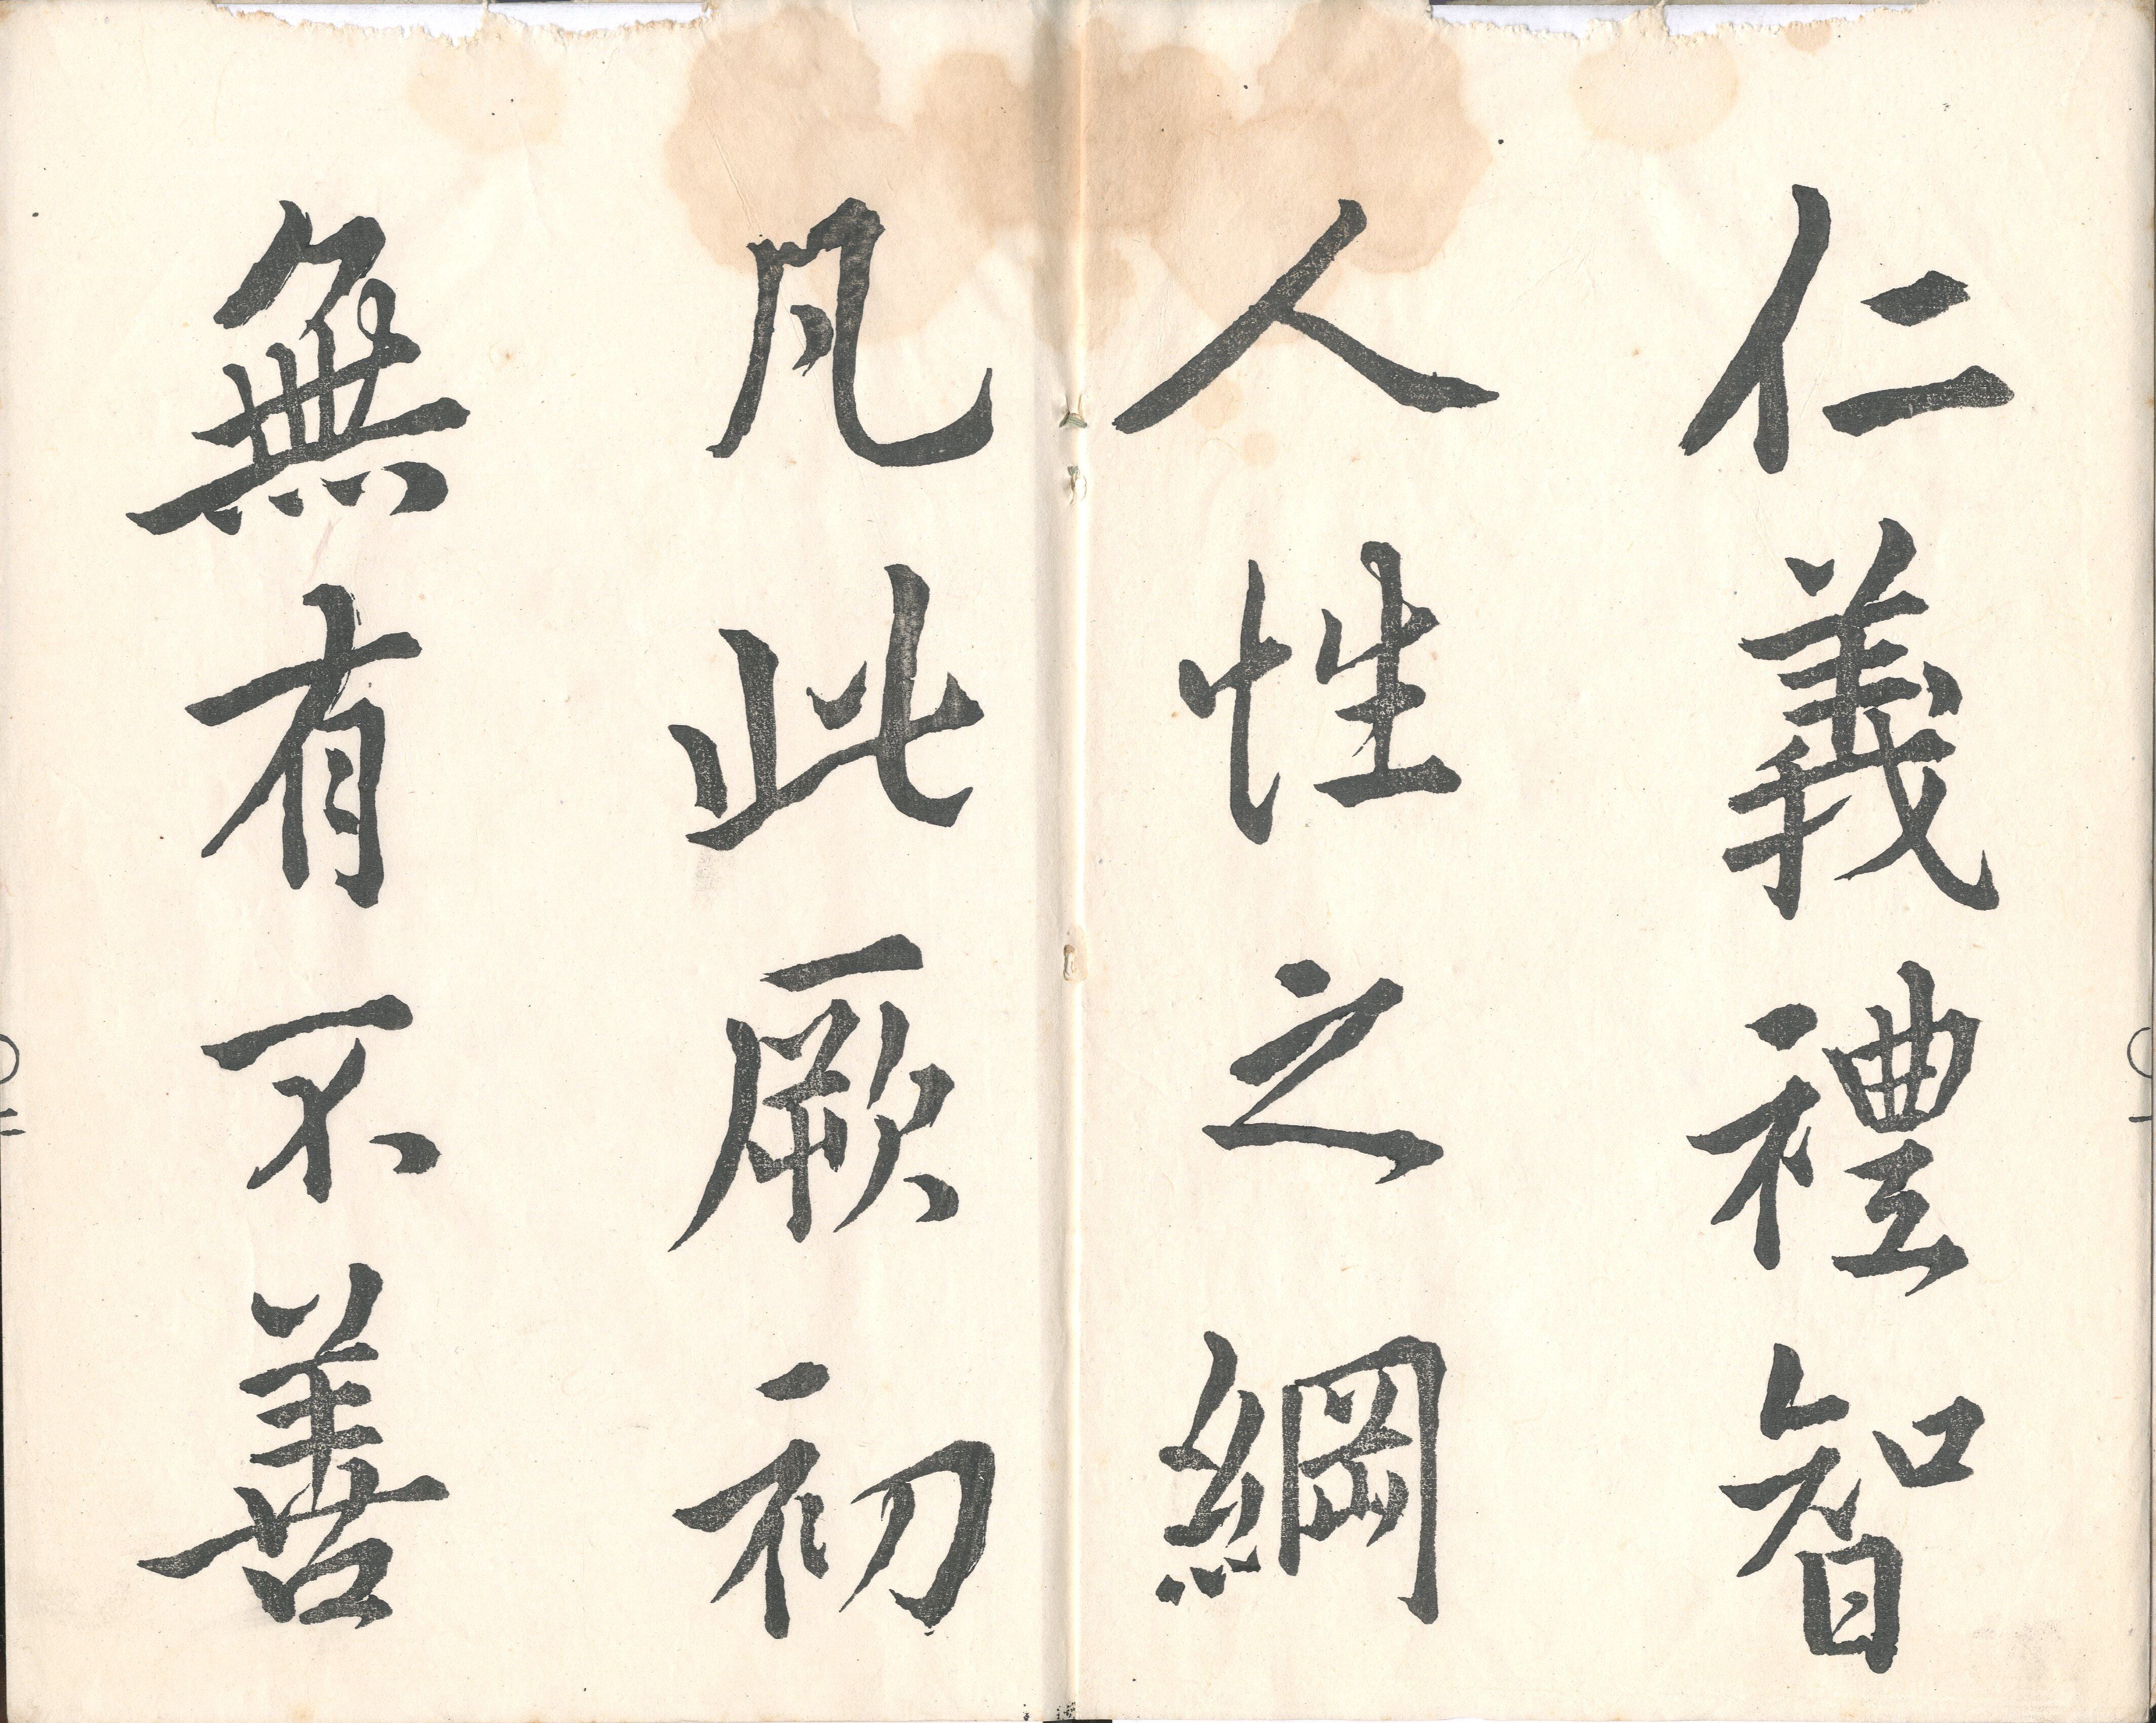 仁義禮智
人性之綱
凡此厥初
無有不善